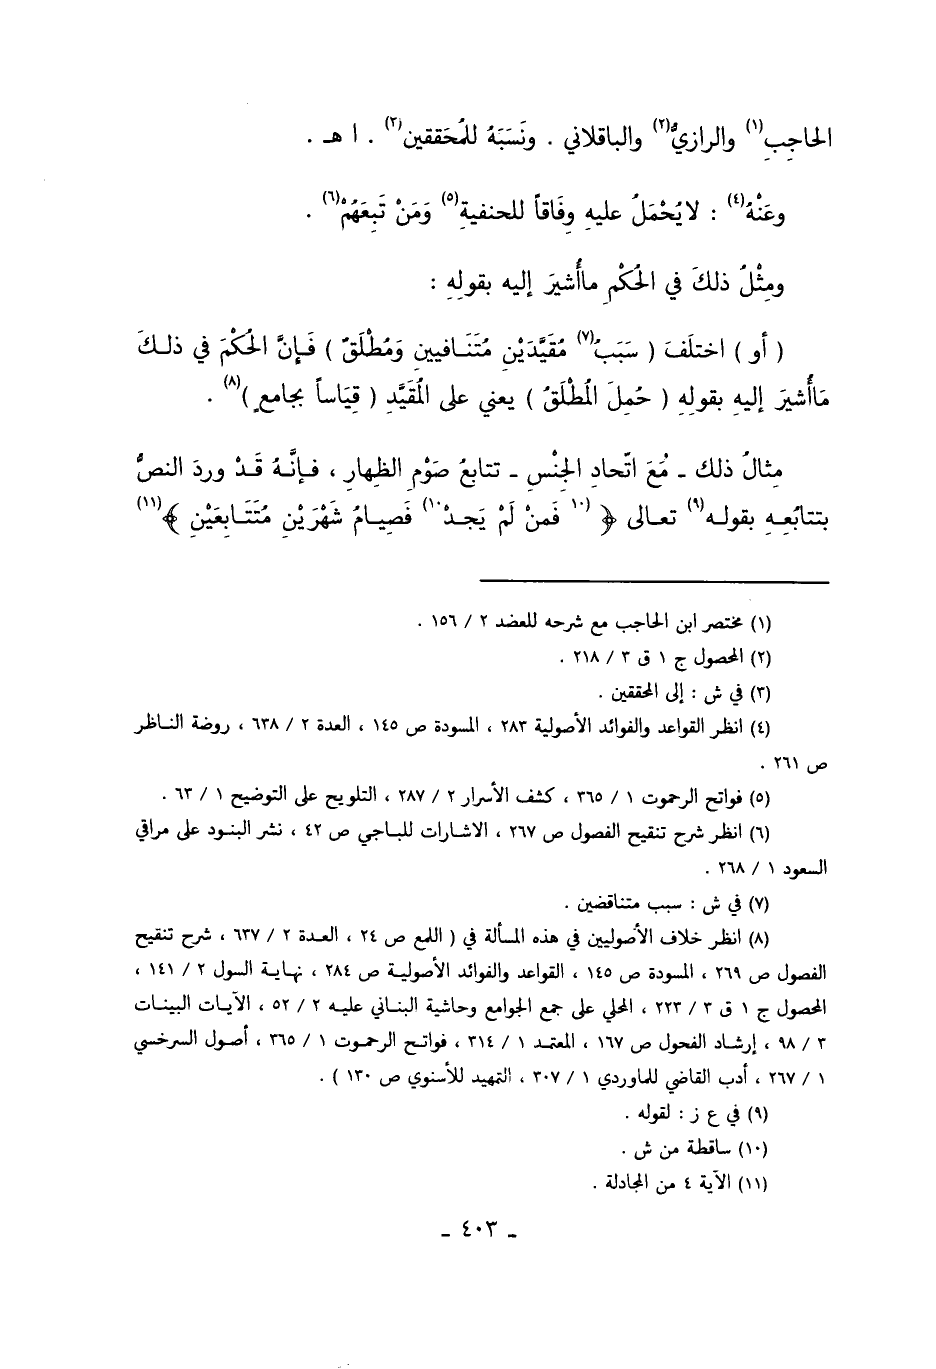 الحاجِبِ(١) والرازيُّ(٢) والباقلاني . ونَسَبَهُ للمُحَققين(٣) . ا هـ .
وعَنْهُ(٤) : لا يُحْمَلُ عليهِ وِفَاقاً للحنفيةِ(٥) وَمَنْ تَبِعَهُمْ(٦) .
ومِثْلُ ذلكَ في الحُكْمِ ماأُشيرَ إليه بقولِهِ :
( أو ) اختلَفَ ( سَبَبُ(٧) مُقَيَّدَيْنِ مُتَنَافيينِ وَمُطْلَقٌ ) فَإنَّ الحُكْمَ في ذلكَ
مَاأُشيرَ إليهِ بقولِهِ ( حُمِلَ المُطْلَقُ ) يعني على المُقَيَّدِ ( قِيَاساً بجامعٍ )(٨) .
مِثالُ ذلك ـ مَعَ اتّحادِ الجِنْسِ ـ تتابعُ صَوْمِ الظهارِ ، فإنَّهُ قَدْ وردَ النصُّ
بتتابُعِهِ بقوله(٩) تعالى ﴿ (١٠ فَمنْ لَمْ يَجدْ١٠) فَصِيامُ شَهْرَيْنِ مُتَتَابِعَيْنِ ﴾(١١)
(١) مختصر ابن الحاجب مع شرحه للعضد ٢ / ١٥٦ .
(٢) المحصول ج ١ ق ٣ / ٢١٨ .
(٣) في ش : إلى المحققين .
(٤) انظر القواعد والفوائد الأصولية ٢٨٣ ، المسودة ص ١٤٥ ، العدة ٢ / ٦٣٨ ، روضة الناظر
ص ٢٦١ .
(٥) فواتح الرحموت ١ / ٣٦٥ ، كشف الأسرار ٢ / ٢٨٧ ، التلويح على التوضيح ١ / ٦٣ .
(٦) انظر شرح تنقيح الفصول ص ٢٦٧ ، الاشارات للباجي ص ٤٢ ، نشر البنود على مراقي
السعود ١ / ٢٦٨ .
(٧) في ش : سبب متناقضين .
(٨) انظر خلاف الأصوليين في هذه المسألة في ( اللمع ص ٢٤ ، العدة ٢ / ٦٣٧ ، شرح تنقيح
الفصول ص ٢٦٩ ، المسودة ص ١٤٥ ، القواعد والفوائد الأصولية ص ٢٨٤ ، نهاية السول ٢ / ١٤١ ،
المحصول ج ١ ق ٣ / ٢٢٣ ، المحلي على جمع الجوامع وحاشية البناني عليه ٢ / ٥٢ ، الآيات البينات
٣ / ٩٨ ، إرشاد الفحول ص ١٦٧ ، المعتمد ١ / ٣١٤ ، فواتح الرحموت ١ / ٣٦٥ ، أصول السرخسي
١ / ٢٦٧ ، أدب القاضي للماوردي ١ / ٣٠٧ ، التمهيد للأسنوي ص ١٣٠ ) .
(٩) في ع ز : لقوله .
(١٠) ساقطة من ش .
(١١) الآية ٤ من المجادلة .
ـ ٤٠٣ ـ